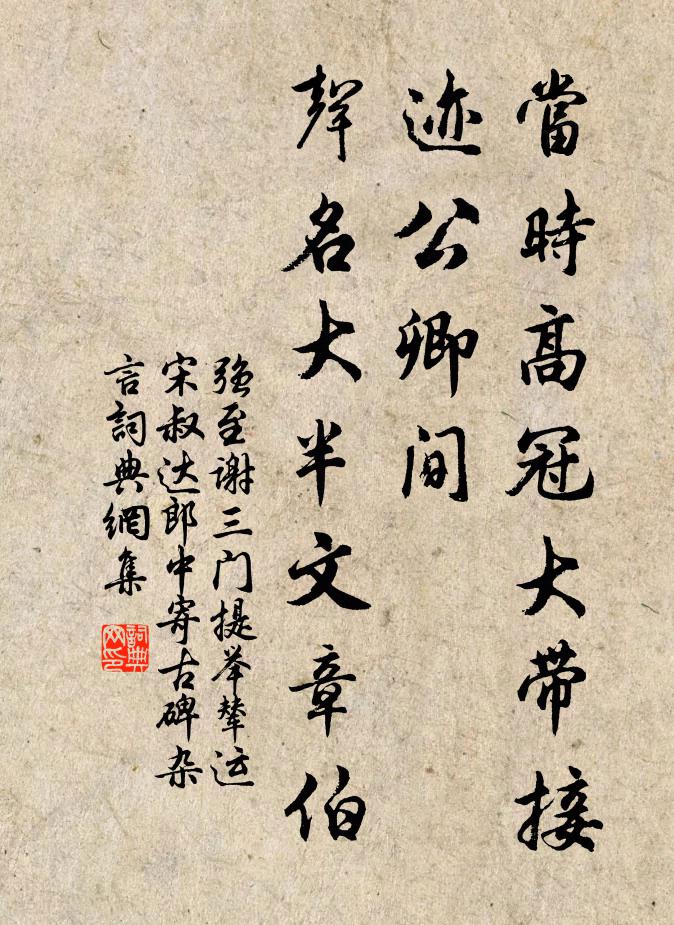 當時高冠大带接
迹公卿間
聲名大半文章伯
强至谢三门提举辇运
宋叔达郎中寄古碑杂
言詞典網集
詞典网印